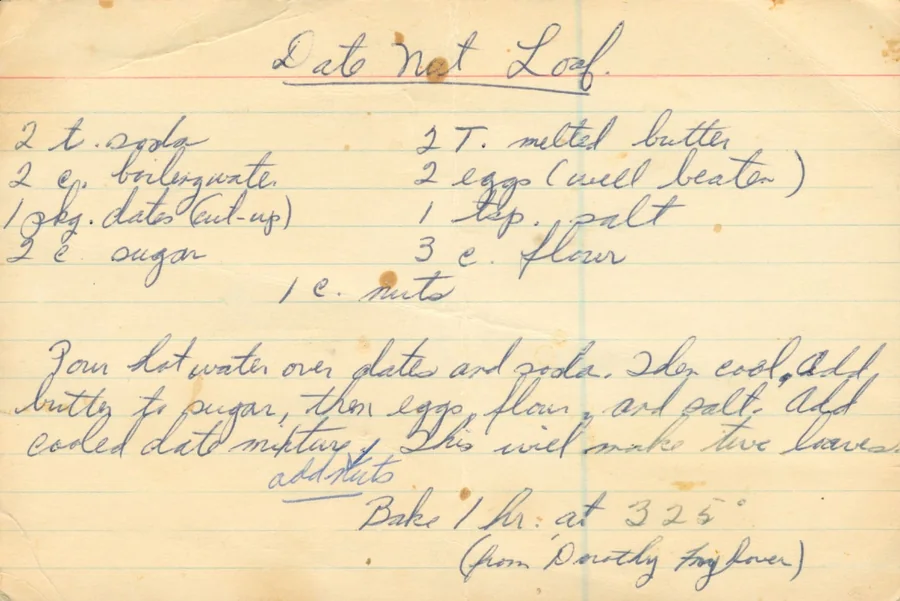 Date Nut Loaf.
2 t. soda 2 T. melted butter
2 c. boiling water 2 eggs (well beaten)
1 pkg. dates (cut-up) 1 tsp. salt
2 c. sugar 3 c. flour
1 c. nuts
Pour hot water over dates and soda. Then cool, Add
butter to sugar, then eggs, flour, and salt. Add
cooled date mixture, This will make two loaves.
add nuts
Bake 1 hr. at 325°
(from Dorothy